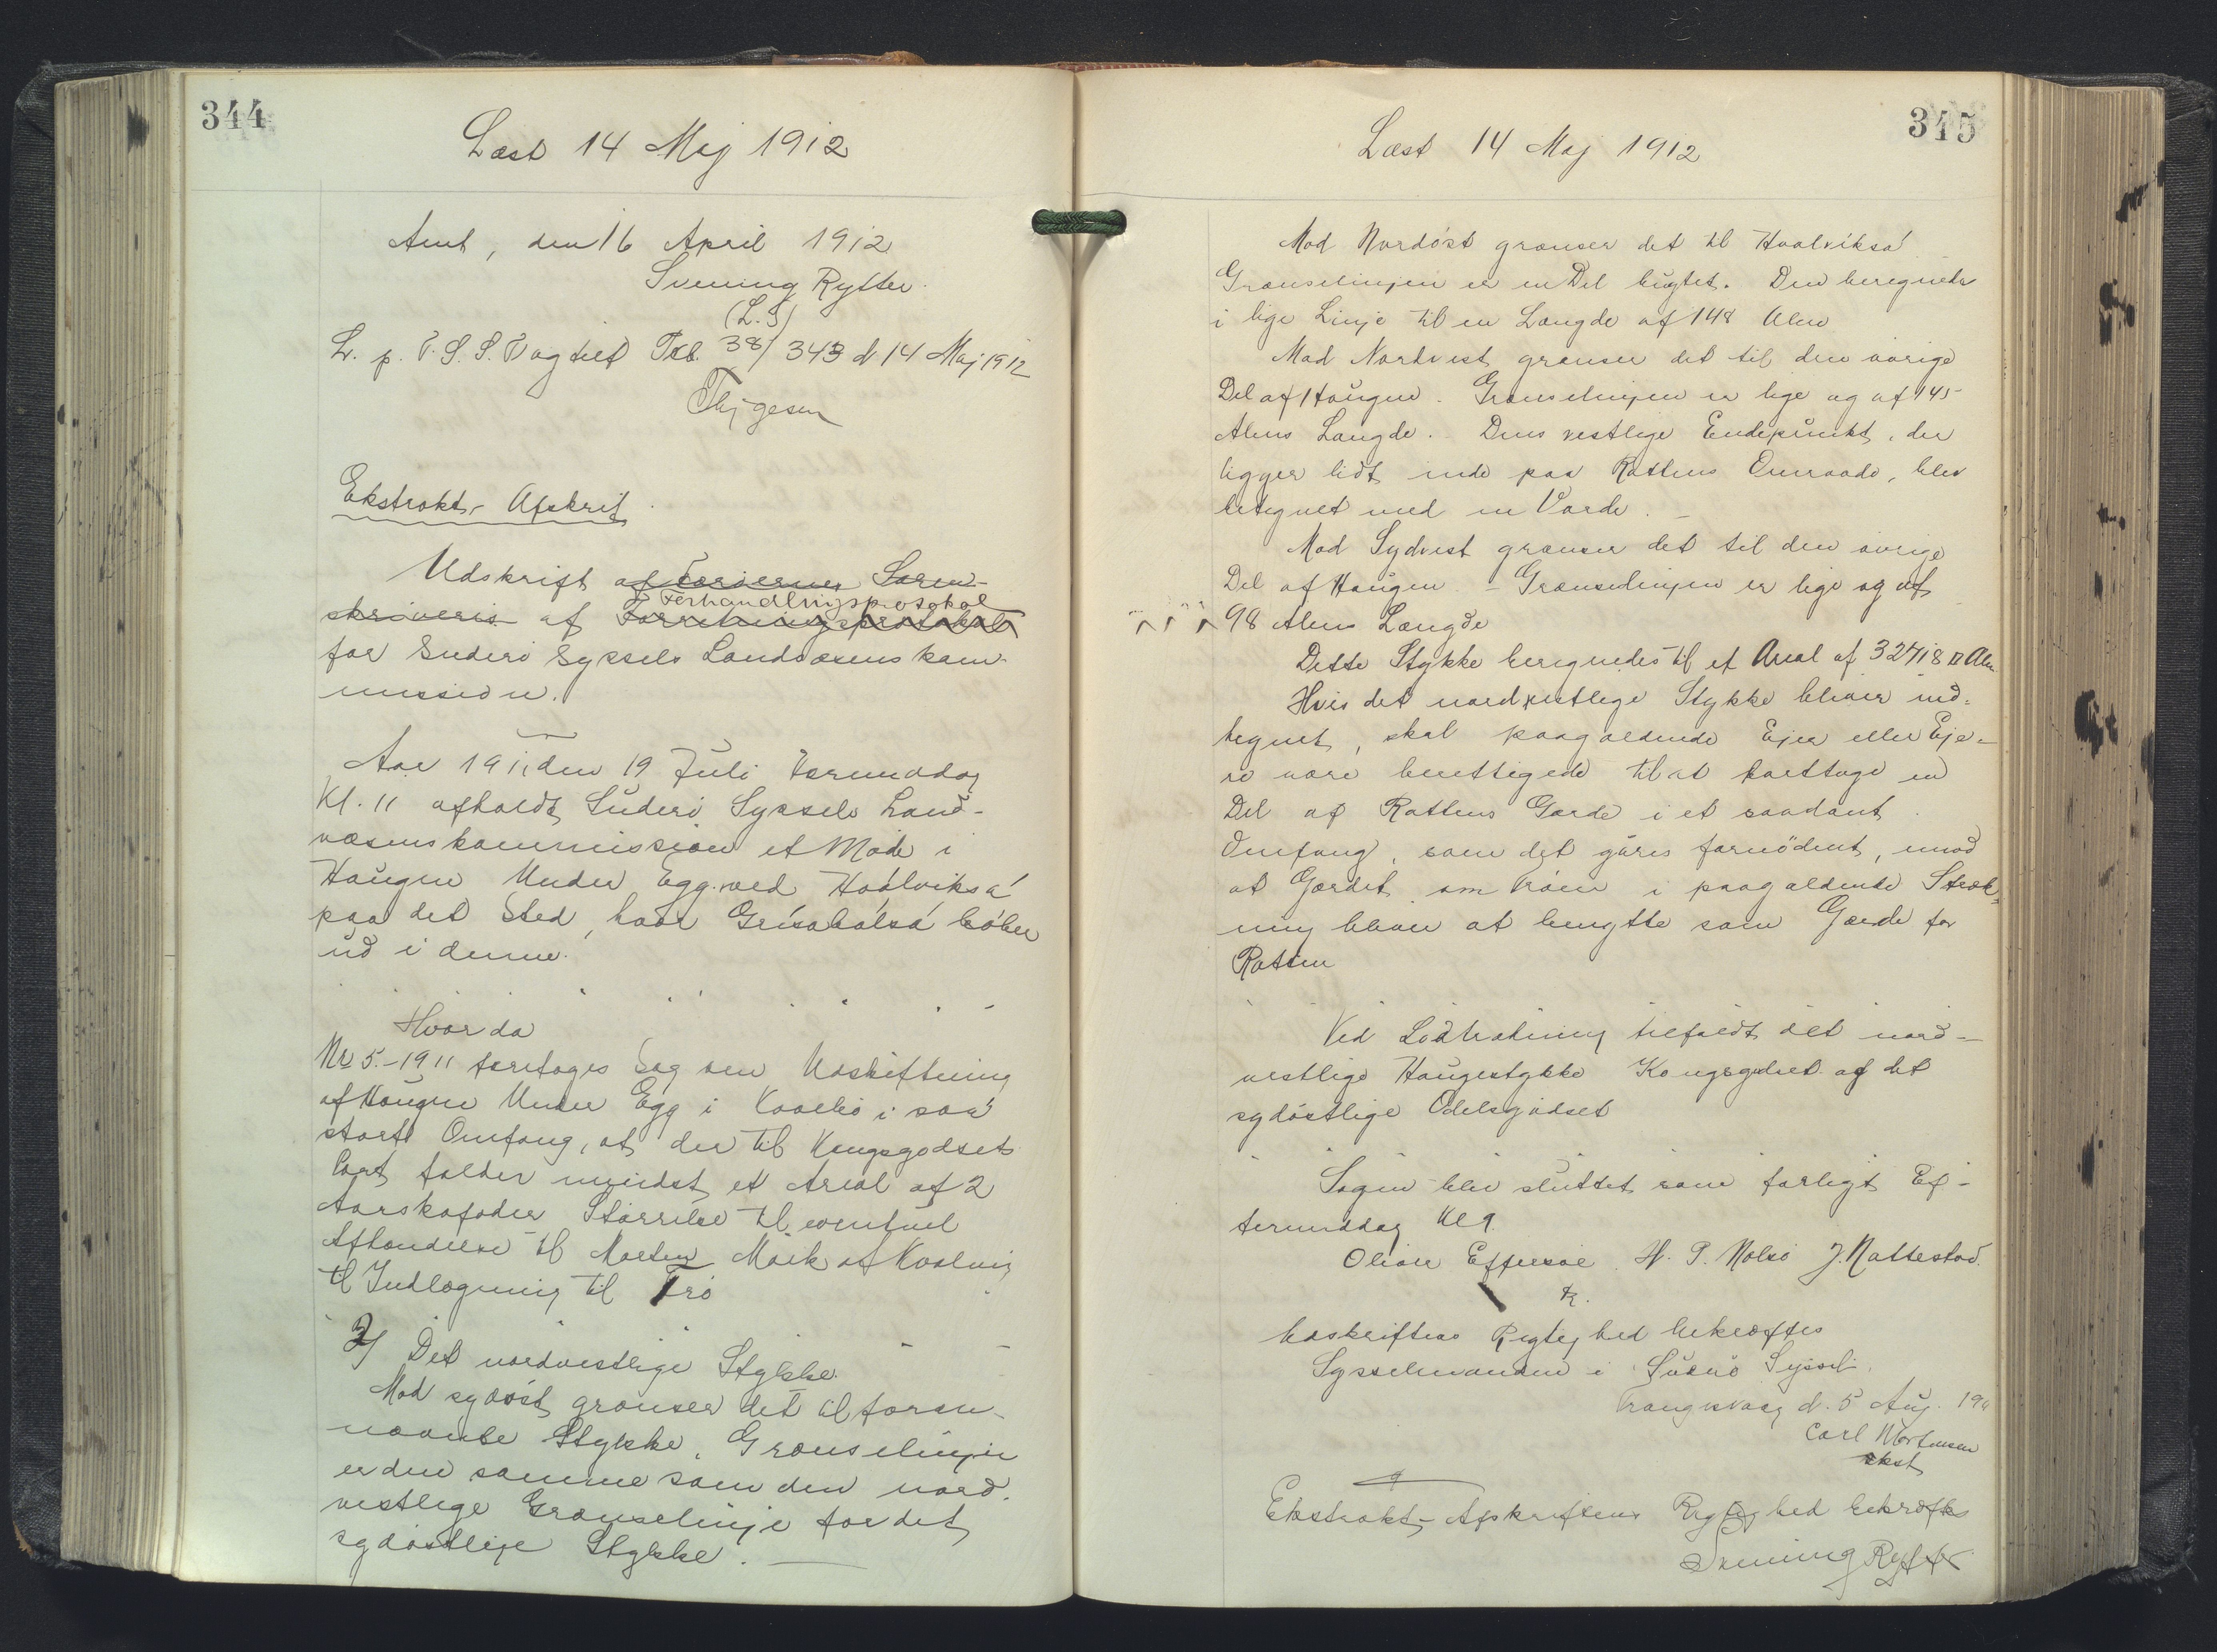 344
Læst 14 Maj 1912
Amt, den 16 April 1912
Svenning Rytter.
(L.S)
L. p. V. S. S. Vagtilt Tkb. 38/343 d. 14 Maj 1912
Thygesen
Ekstrakt-Afskrift.
Udskrift af Færøernes Soren-
Forhandlingsprotokol
skriveris af Forretningsprotokol
for Suderø Syssels Landvæsenskom-
mission.
Aar 1911, den 19 Juli Formiddag
Kl. 11 afholdt Suderø Syssels Land-
væsenskommission et Møde i
Haugen Under Egg ved Hvalviksá
paa det Sted, hvor Grisabólsá løber
ud i denne.
Hvorda
Nr 5-1911 foretoges Sag om Udskiftning
af Haugen Under Egg i Kvalbø i saa
stort Omfang, at der til Kongsgodset
Part falder mindst et Areal af 2
Aarskofoder Størrelse til eventuel
Afhændelse til Morten Mörk af Kvalvig
til Indlægning til Trø
2/ Det nordvestlige Stykke.
Mod sydøst grænser det til foran-
nævnte Stykke. Grænselinjen
er den samme som den nord-
vestlige Grænselinje for det
sydøstlige Stykke.
345
Læst 14 Maj 1912
Mod Nordöst grænser det til Hvalviksá
Grænselinjen er en Del bugtet. Den beregnedes
i lige Linje til en Længde af 148 Alen
Mod Nordvest grænser det til den øvrige
Del af Haugen. Grænselinjen er lige og af 145
Alens Længde. Dens vestlige Endepunkt, der
ligger lidt inde paa Rættens Omraade, blev
betegnet med en Varde.
Mod Sydvest grænser det til den øvrige
Del af Haugen - Grænselinjen er lige og af
98 Alens Længde
Dette Stykke beregnedes til et Areal af 32418 □ Alen
Hvis det nordvestlige Stykke bliver ind-
hegnet, skal paagældende Ejer eller Eje-
re være berettigede til at borttage en
Del af Rættens Gærde i et saadant
Omfang, som det gøres fornødent, imod
at Gærdet om Trøen i paagældende Stræk-
ning bliver at benytte som Gærde for
Rætten
Ved Lodtrækning tilfaldt det nord-
vestlige Haugestykke Kongsgodset og det
sydöstlige Odelsgodset
Sagen blev sluttet som forligt Ef-
termiddag Kl 9.
Oliver Effersøe. H. P. Nolsø J. Nattestad.
Udskriftens Rigtighed bekræftes
Sysselmanden i Suderø Syssel.
Trangisvaag d. 5 Aug. 1911
Carl Mortensen
kst
Ekstrakt-Afskriftens Rigtighed bekræftes
Svenning Rytter